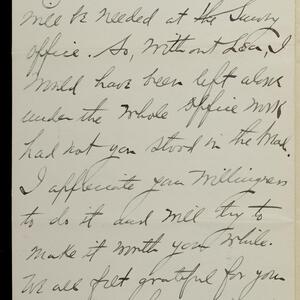 will be needed at the Survey
office. So, without Lea, I
would have been left alone
under the whole office work
had not you stood in the
I appreciate your willingness
to do it and will try to
make it worth your while.
We all felt grateful for you